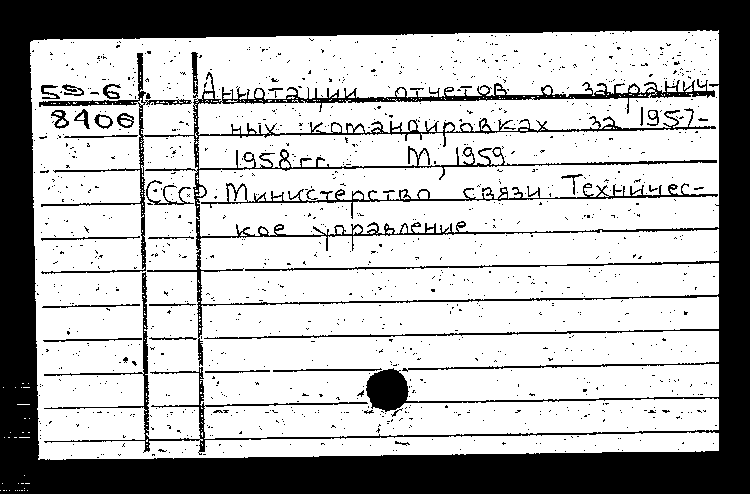 59-6 Аннотации отчетов о заграгич-
8406 ных командировках за 1957-
1958 гг. М., 1959.
СССР. Министерство связи. Техничес-
кое управление